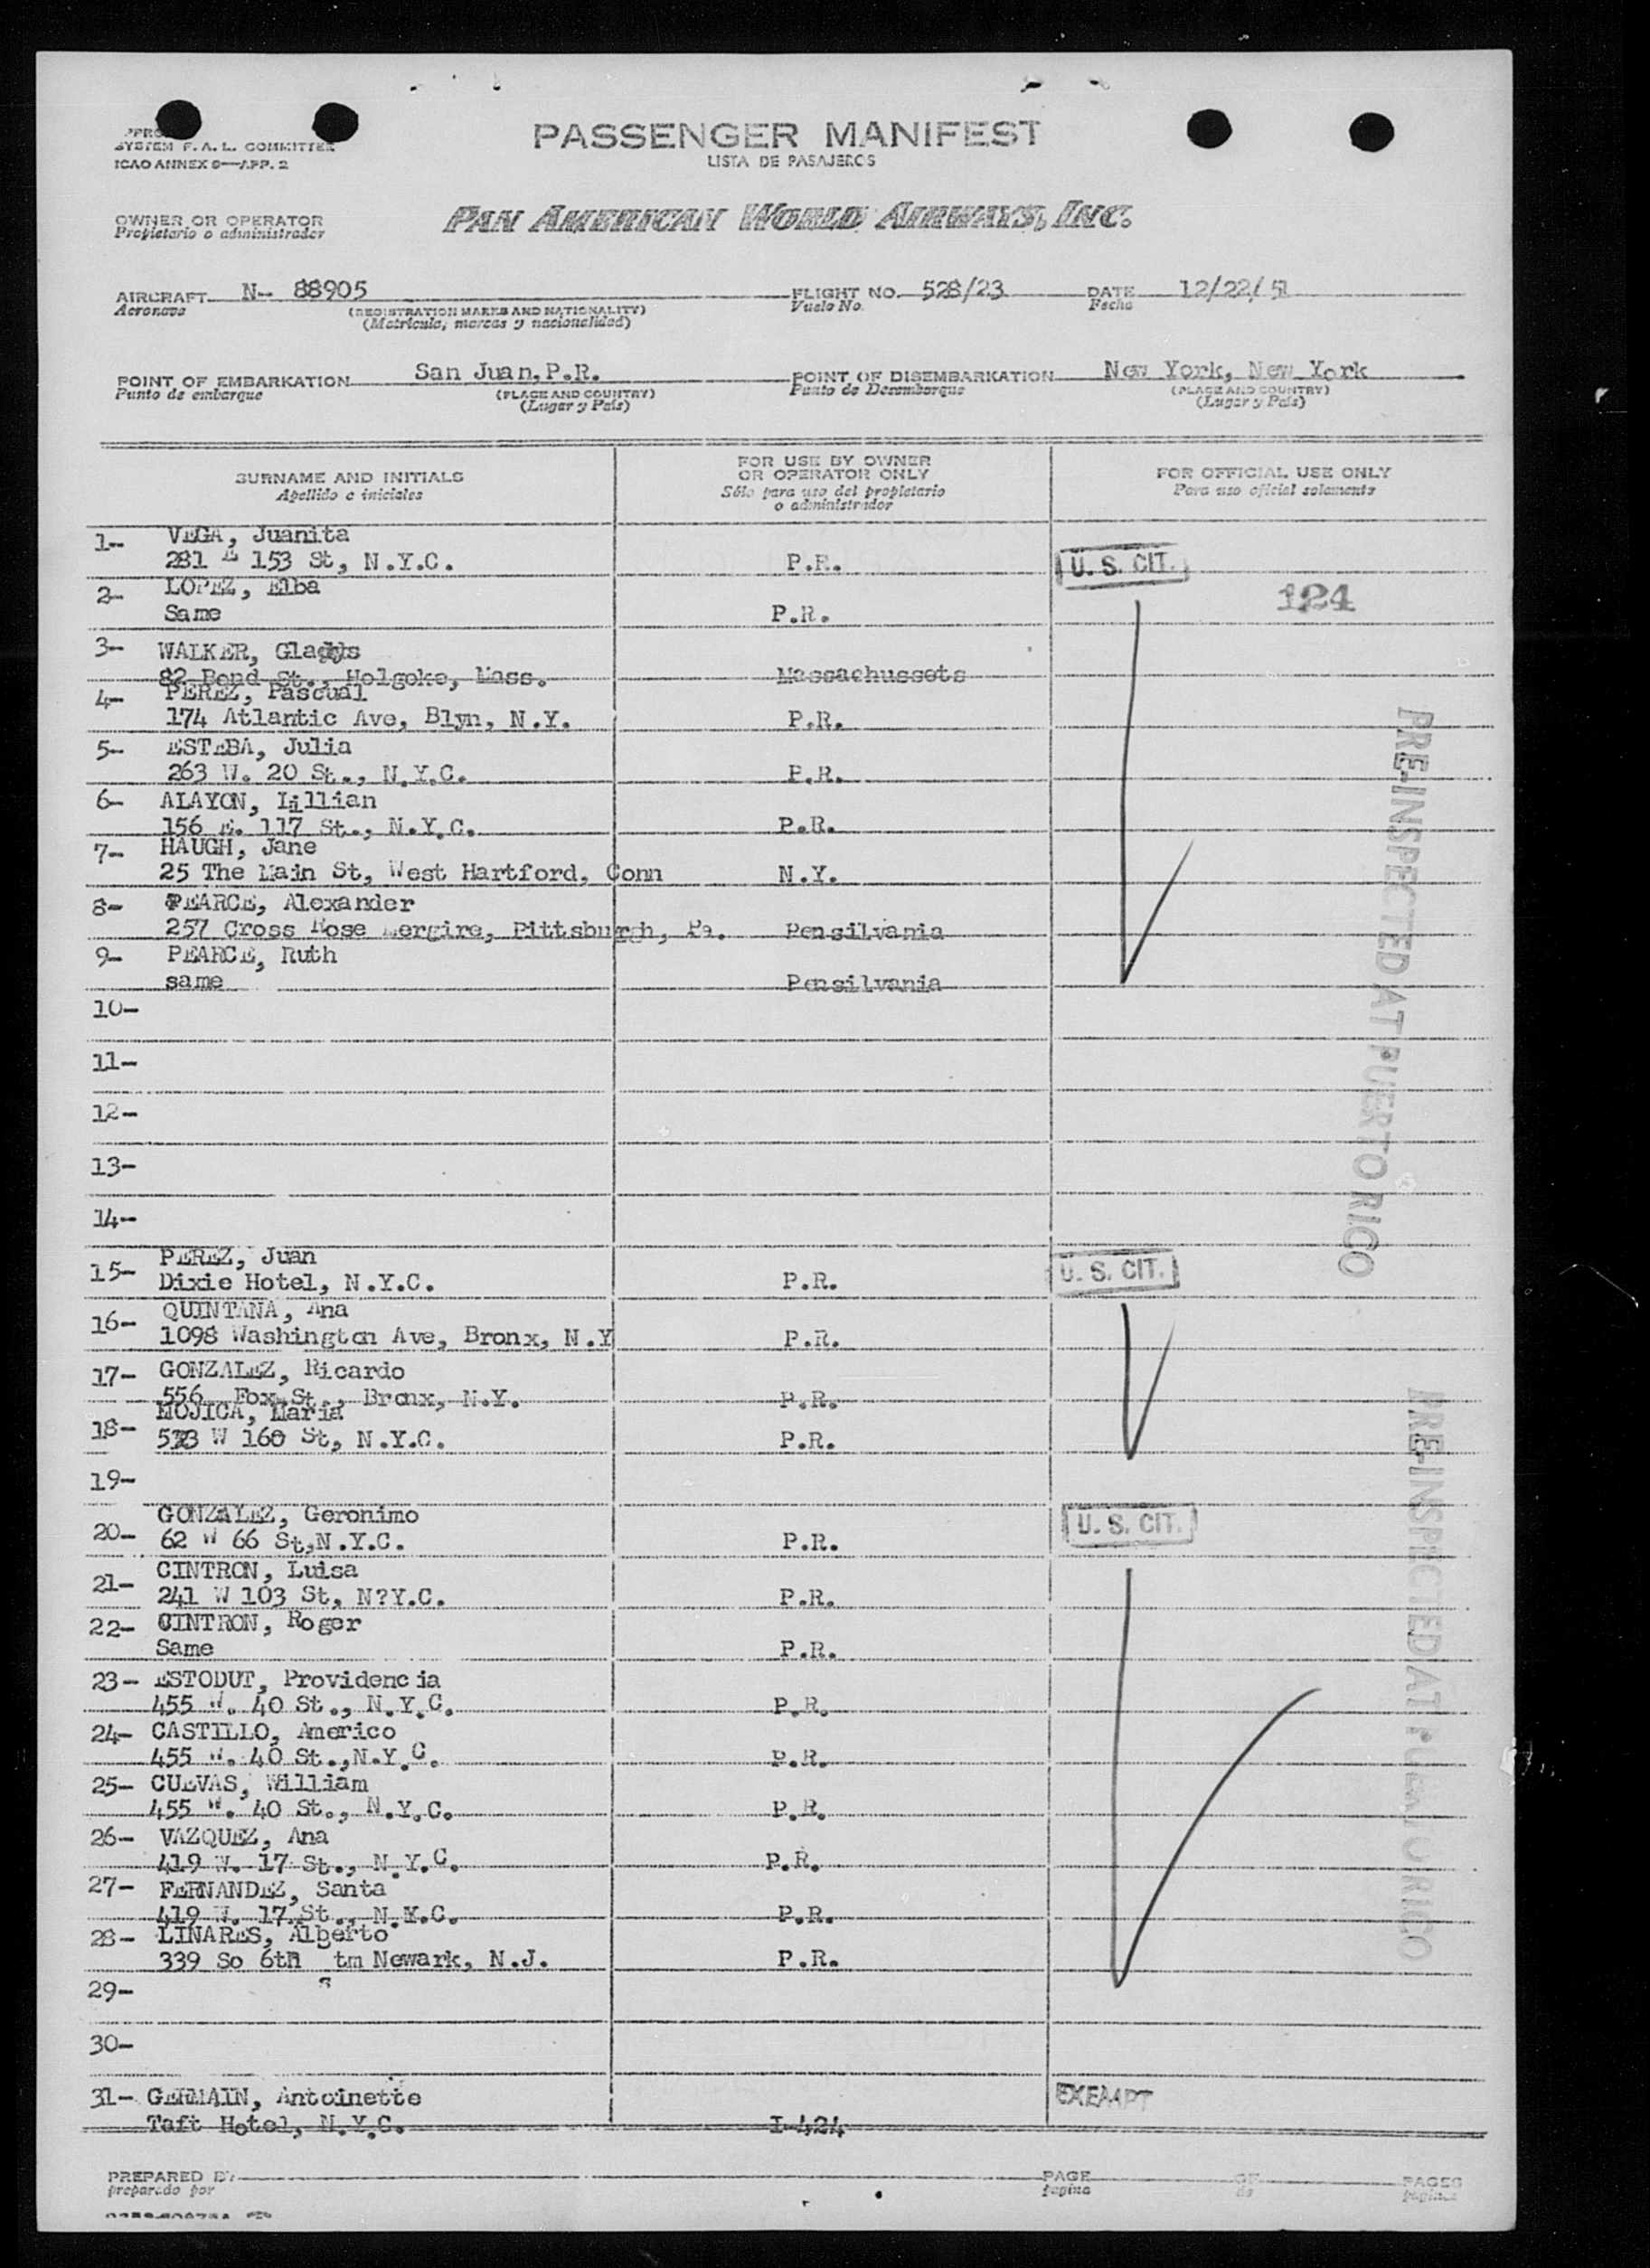 SYSTEM F. A. L. COMMITTEE
ICAO ANNEX 9—APP. 2
PASSENGER MANIFEST
LISTA DE PASAJEROS
OWNER OR OPERATOR
Propietario o administrador
PAN AMERICAN WORLD AIRWAYS, INC.
AIRCRAFT N- 88905 FLIGHT NO. 528/23 DATE 12/22/51
Aeronave (REGISTRATION MARKS AND NATIONALITY) Vuelo No. Fecha
(Matricula, marcas y nacionalidad)
POINT OF EMBARKATION San Juan, P.R. POINT OF DISEMBARKATION New York, New York
Punto de embarque (PLACE AND COUNTRY) Punto de Desembarque (PLACE AND COUNTRY)
(Lugar y País) (Lugar y País)
SURNAME AND INITIALS
Apellido e iniciales
FOR USE BY OWNER
OR OPERATOR ONLY
Sólo para uso del propietario
o administrador
FOR OFFICIAL USE ONLY
Para uso oficial solamente
1- VEGA, Juanita
281 E 153 St, N.Y.C. P.R. U. S. CIT.
2- LOPEZ, Elba 124
Same P.R.
3- WALKER, Gladys
82 Bond St., Holgoke, Mass. Massachussets
4- PEREZ, Pascual
174 Atlantic Ave, Blyn, N.Y. P.R.
5- ESTEBA, Julia
263 W. 20 St., N.Y.C. P.R.
6- ALAYON, Lillian
156 E. 117 St., N.Y.C. P.R.
7- HAUGH, Jane
25 The Main St, West Hartford, Conn N.Y.
8- PEARCE, Alexander
257 Cross Rose Pittsburgh, Pa. Pensilvania
9- PEARCE, Ruth
same Pensilvania
PRE-INSPECTED AT PUERTO RICO
10-
11-
12-
13-
14-
15- PEREZ, Juan
Dixie Hotel, N.Y.C. P.R. U. S. CIT.
16- QUINTANA, Ana
1098 Washington Ave, Bronx, N.Y P.R.
17- GONZALEZ, Ricardo
556 Fox St., Bronx, N.Y. P.R.
18- MOJICA, Maria
W 160 St, N.Y.C. P.R.
19-
20- GONZALEZ, Geronimo
62 W 66 St, N.Y.C. P.R. U. S. CIT.
21- CINTRON, Luisa
241 W 103 St, N?Y.C. P.R.
22- CINTRON, Roger
Same P.R.
23- ESTODUT, Providencia
455 W. 40 St., N.Y.C. P.R.
24- CASTILLO, Americo
455 W. 40 St., N.Y.C. P.R.
25- CUEVAS, William
455 W. 40 St., N.Y.C. P.R.
26- VAZQUEZ, Ana
419 W. 17 St., N.Y.C. P.R.
27- FERNANDEZ, Santa
419 W. 17 St., N.Y.C. P.R.
28- LINARES, Alberto
339 So 6th tm Newark, N.J. P.R.
s
PRE-INSPECTED AT PUERTO RICO
29-
30-
31- GERMAIN, Antoinette EXEMPT
Taft Hotel, N.Y.C. I-424
PREPARED BY PAGE OF PAGES
preparado por página de páginas